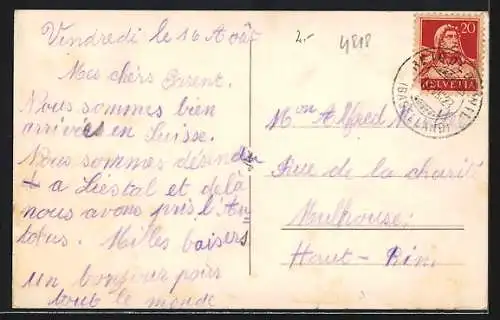 Vendredi le 16 Août
Mes chèrs Parent.
Nous sommes bien
arrivées en Suisse.
Nous sommes désindu
+ a Liestal et delà
nous avons pris l'Au
tobus. Milles baisers
un bonjour pour
tout le monde
2.- 4818
20
HELVETIA
(BASELLAND)
Mon Alfred
Rue de la charité
Mulhouse.
Haut-Rhin